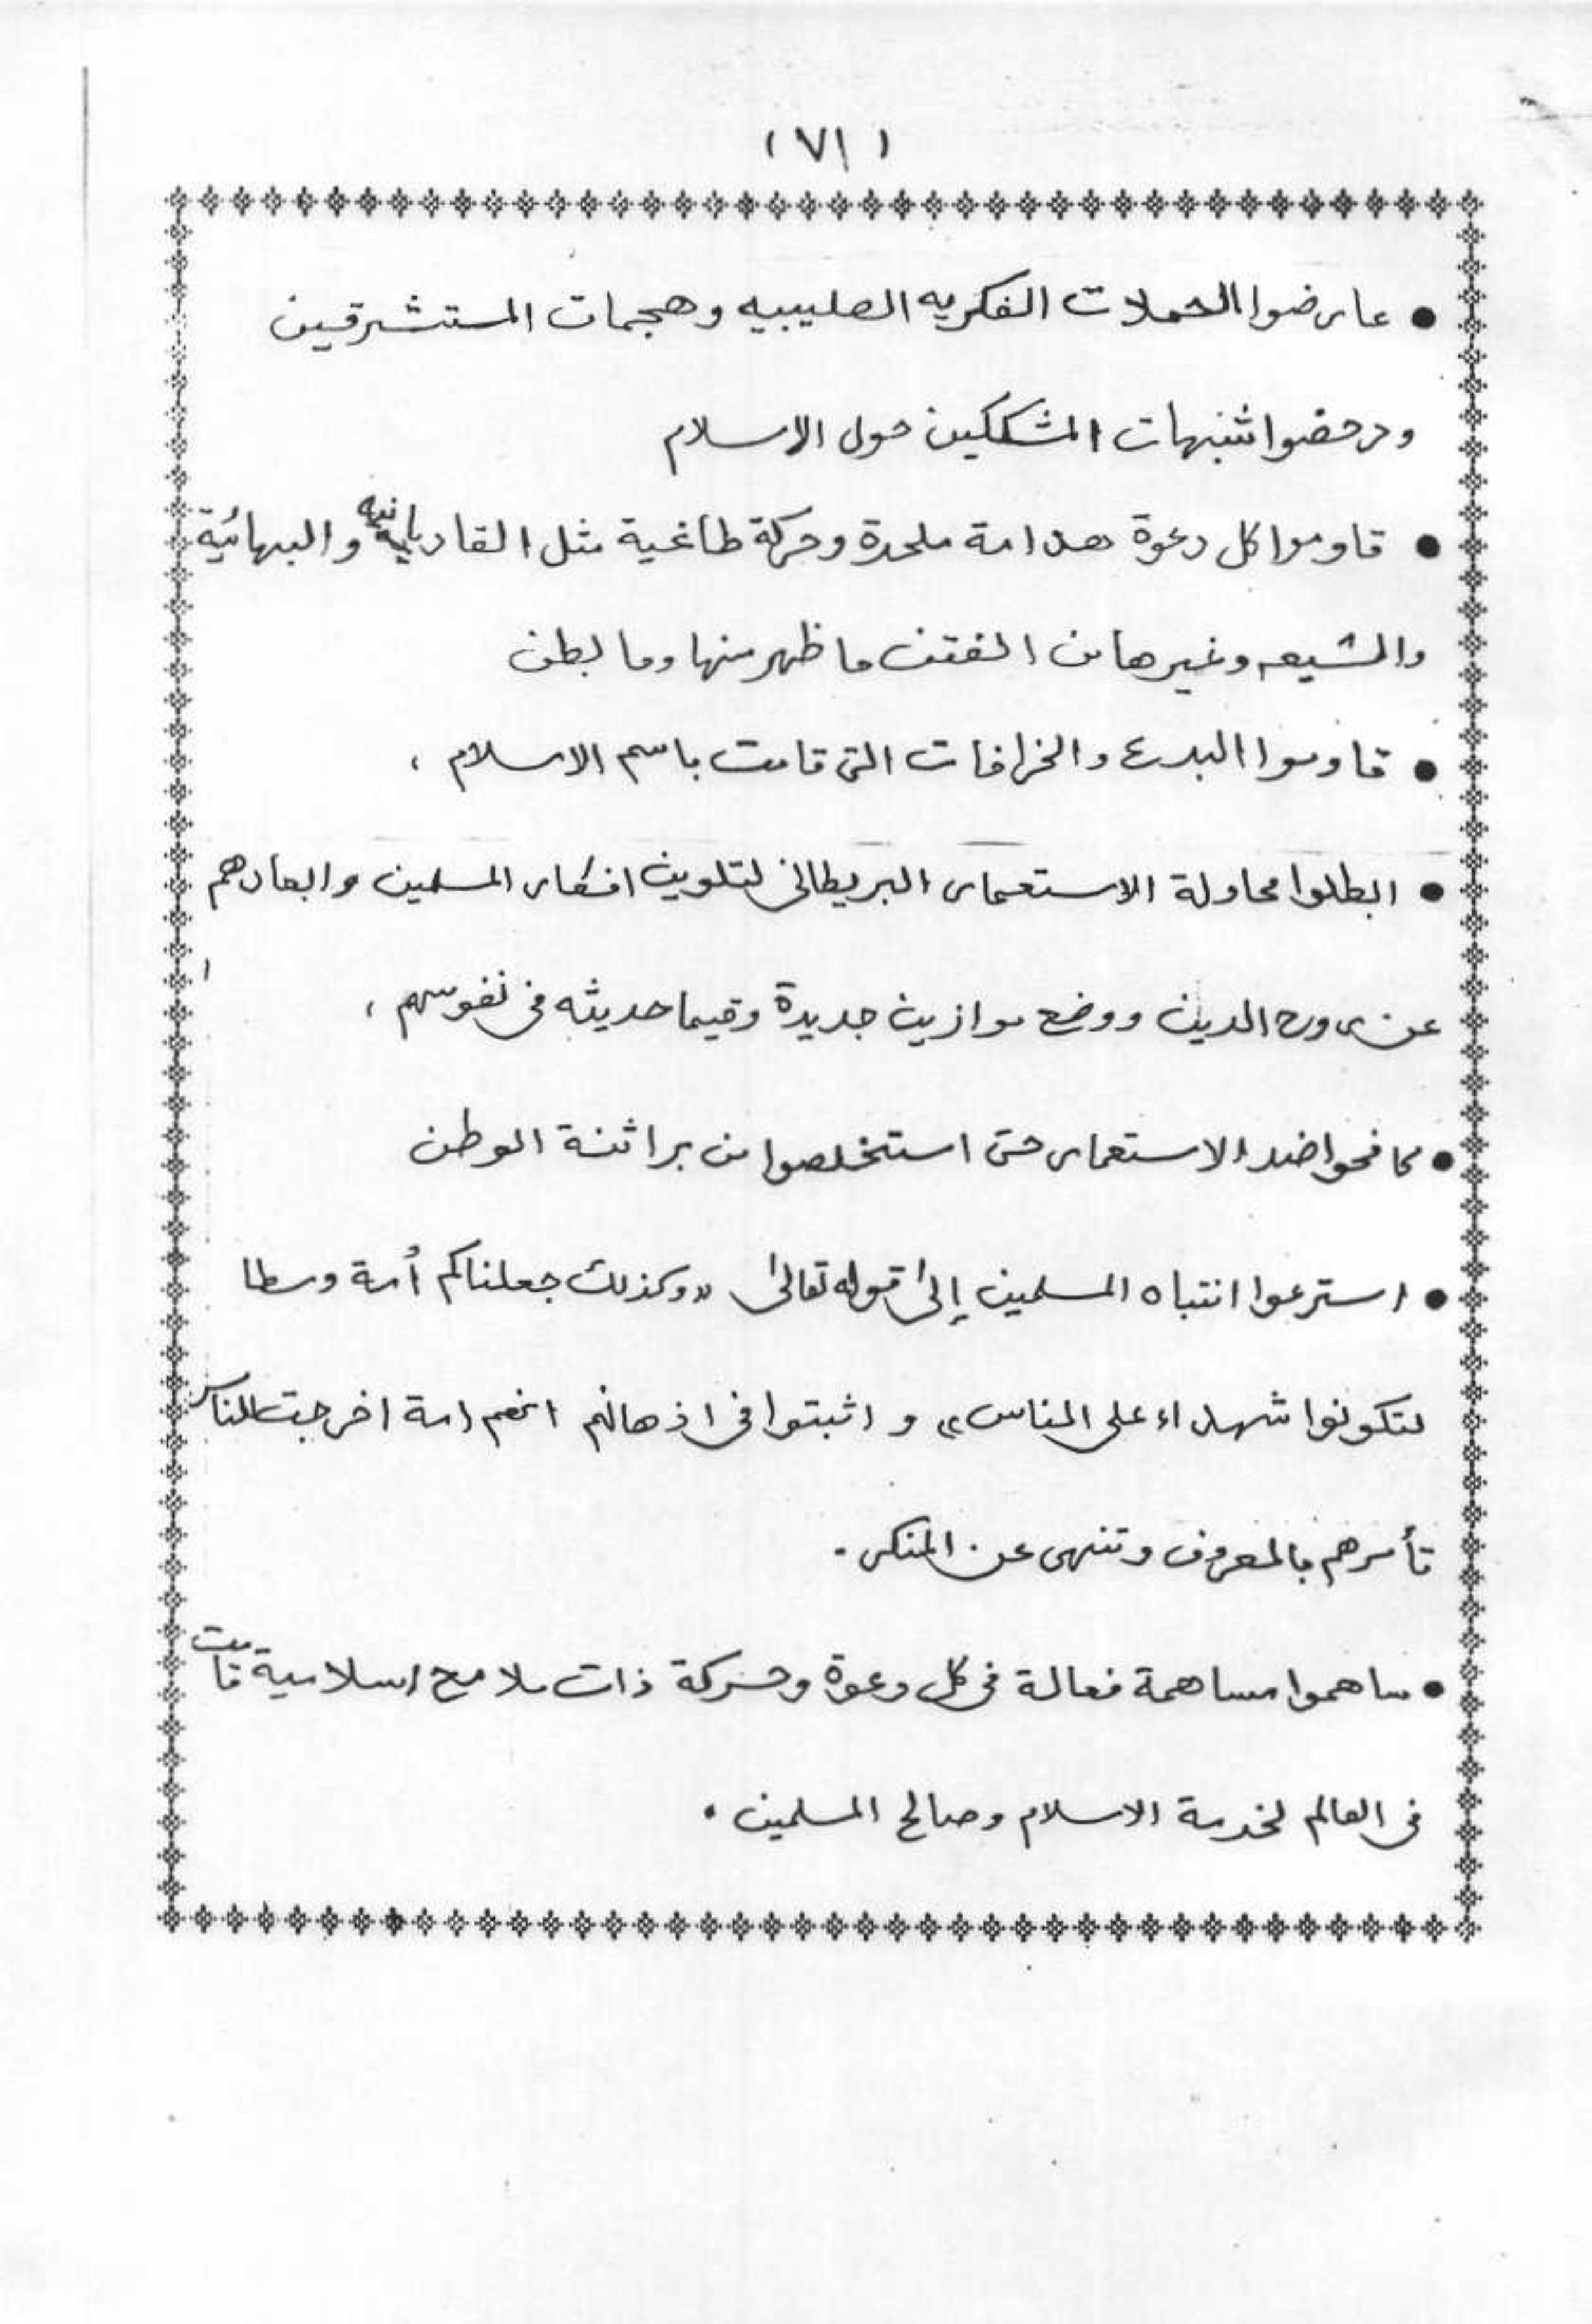 (٧١)
• عارضوا الحملات الفكريه الصليبيه وهجمات المستشرقين
ودحضوا شبهات المشككين حول الاسلام
• قاوموا كل دعوة هدامة ملحدة وحركة طاغية مثل القاديانيه والبهائية
والشيعه وغيرها من الفتن ما ظهر منها وما بطن
• قاوموا البدع والخرافات التى قامت باسم الاسلام ،
• ابطلوا محاولة الاستعمار البريطانى لتلوين افكار المسلمين وابعادهم
عن روح الدين ووضع موازين جديدة وقيما حديثه فى نفوسهم ،
• كافحوا ضد الاستعمار حتى استخلصوا من براثنة الوطن
• استرعوا انتباه المسلمين إلى قوله تعالى «وكذلك جعلناكم أمة وسطا
لتكونوا شهداء على الناس» و اثبتوا فى اذهانهم انهم امة اخرجت للناس
تأمرهم بالمعروف وتنهى عن المنكر .
• ساهموا مساهمة فعالة فى كل دعوة وحركة ذات ملامح اسلامية قامت
فى العالم لخدمة الاسلام وصالح المسلمين .